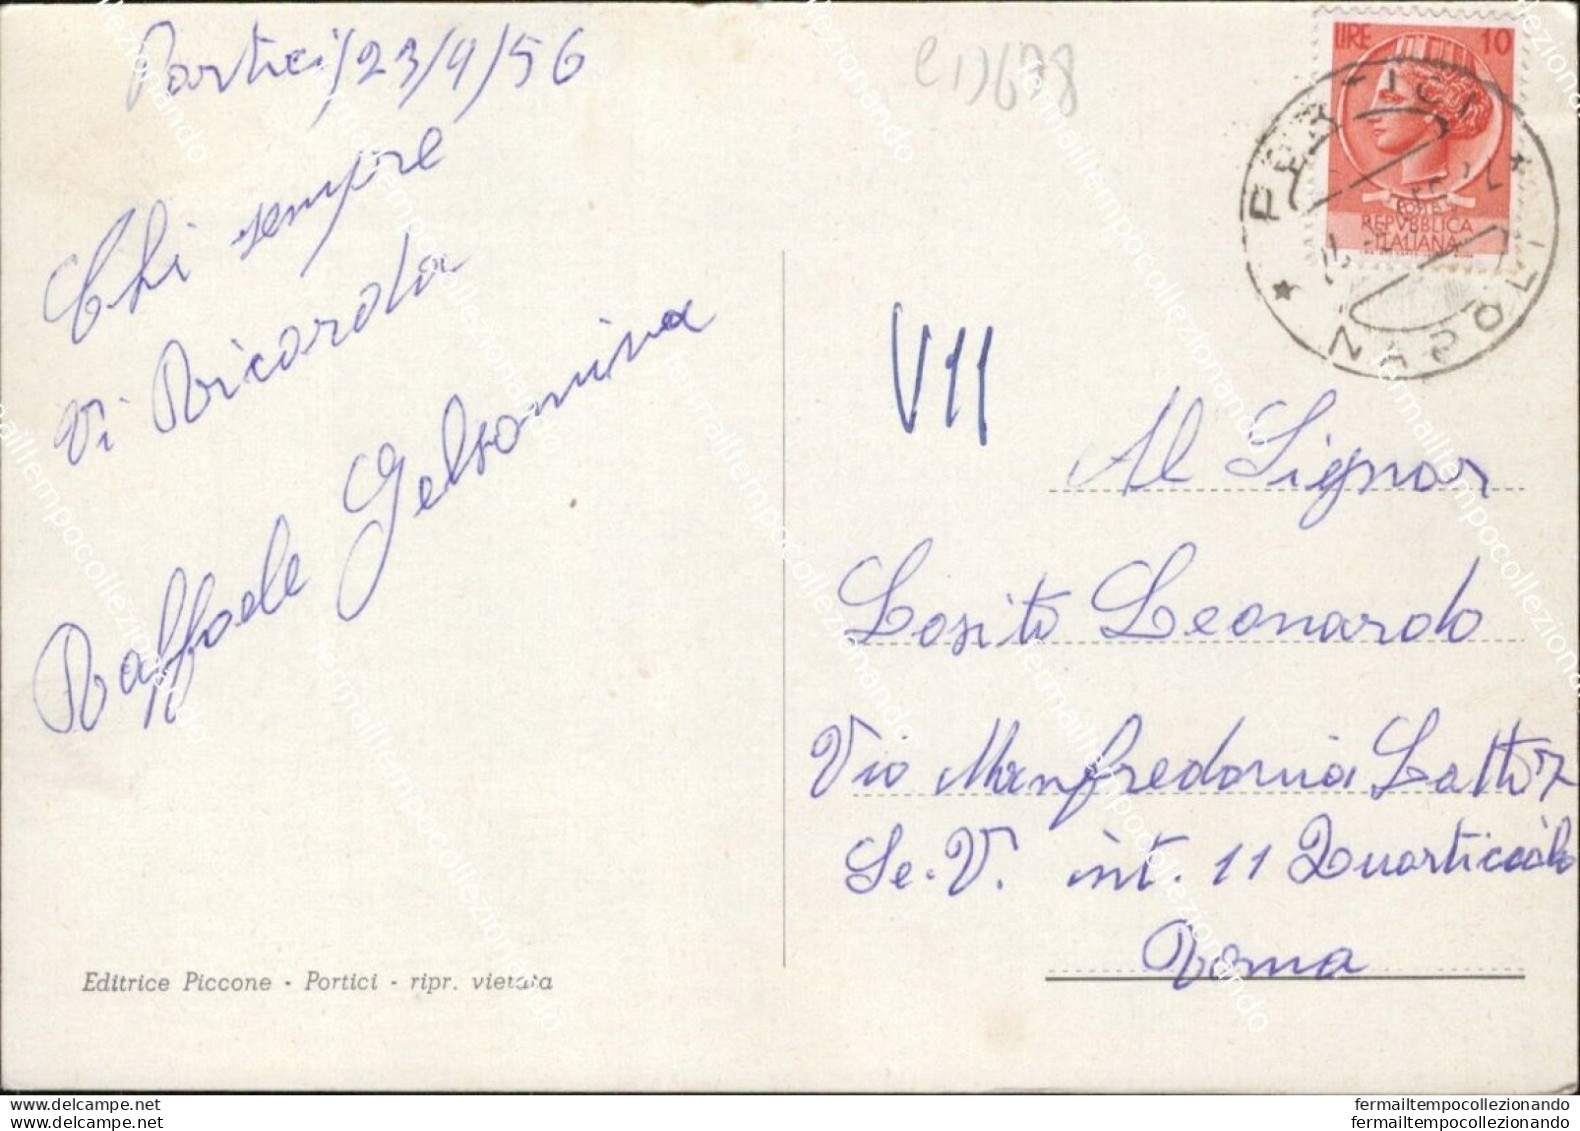 Portici, 23/4/56
Chi sempre
Vi Ricorda
Raffaele Gelsomina
Editrice Piccone - Portici - ripr. vietata
e1)678
LIRE 10
POSTE
REPVBBLICA
ITALIANA
PORTICI
NAPOLI
VII
Al Signor
Losito Leonardo
Via Manfredonia Lotto 7
Sc. V. int. 11 Quarticciolo
Roma
www.delcampe.net
www.delcampe.net
fermailtempocollezionando
fermailtempocollezionando